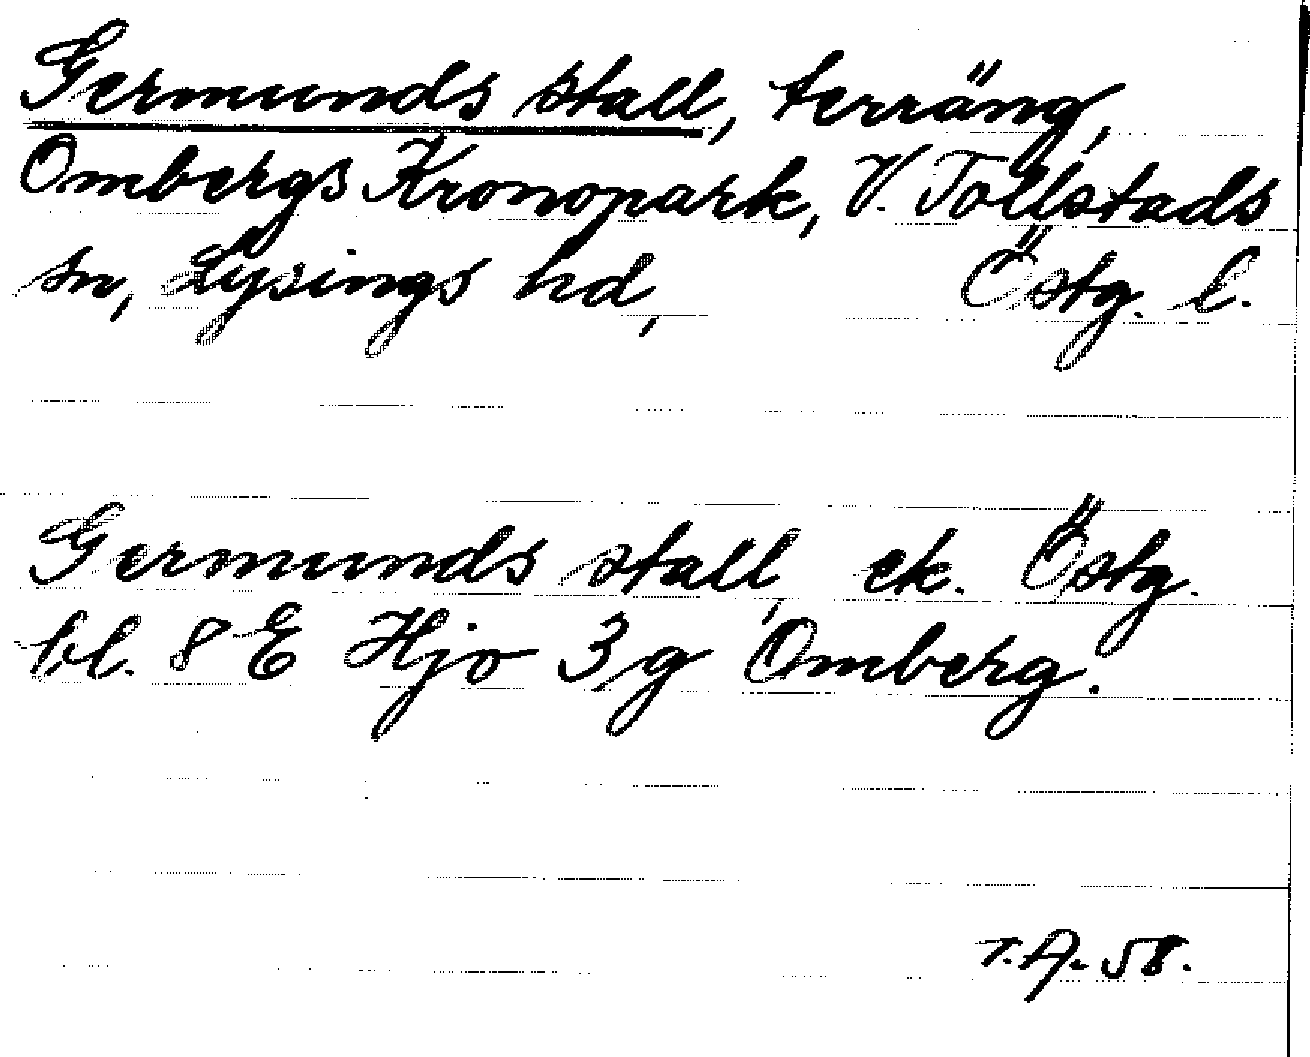 Germunds stall, terräng,
Ombergs Kronopark, V. Tollstads
sn, Lysings hd, Östg. l.
Germunds stall, ek. Östg.
bl. 8 E Hjo 3,g Omberg.
T.A. 58.